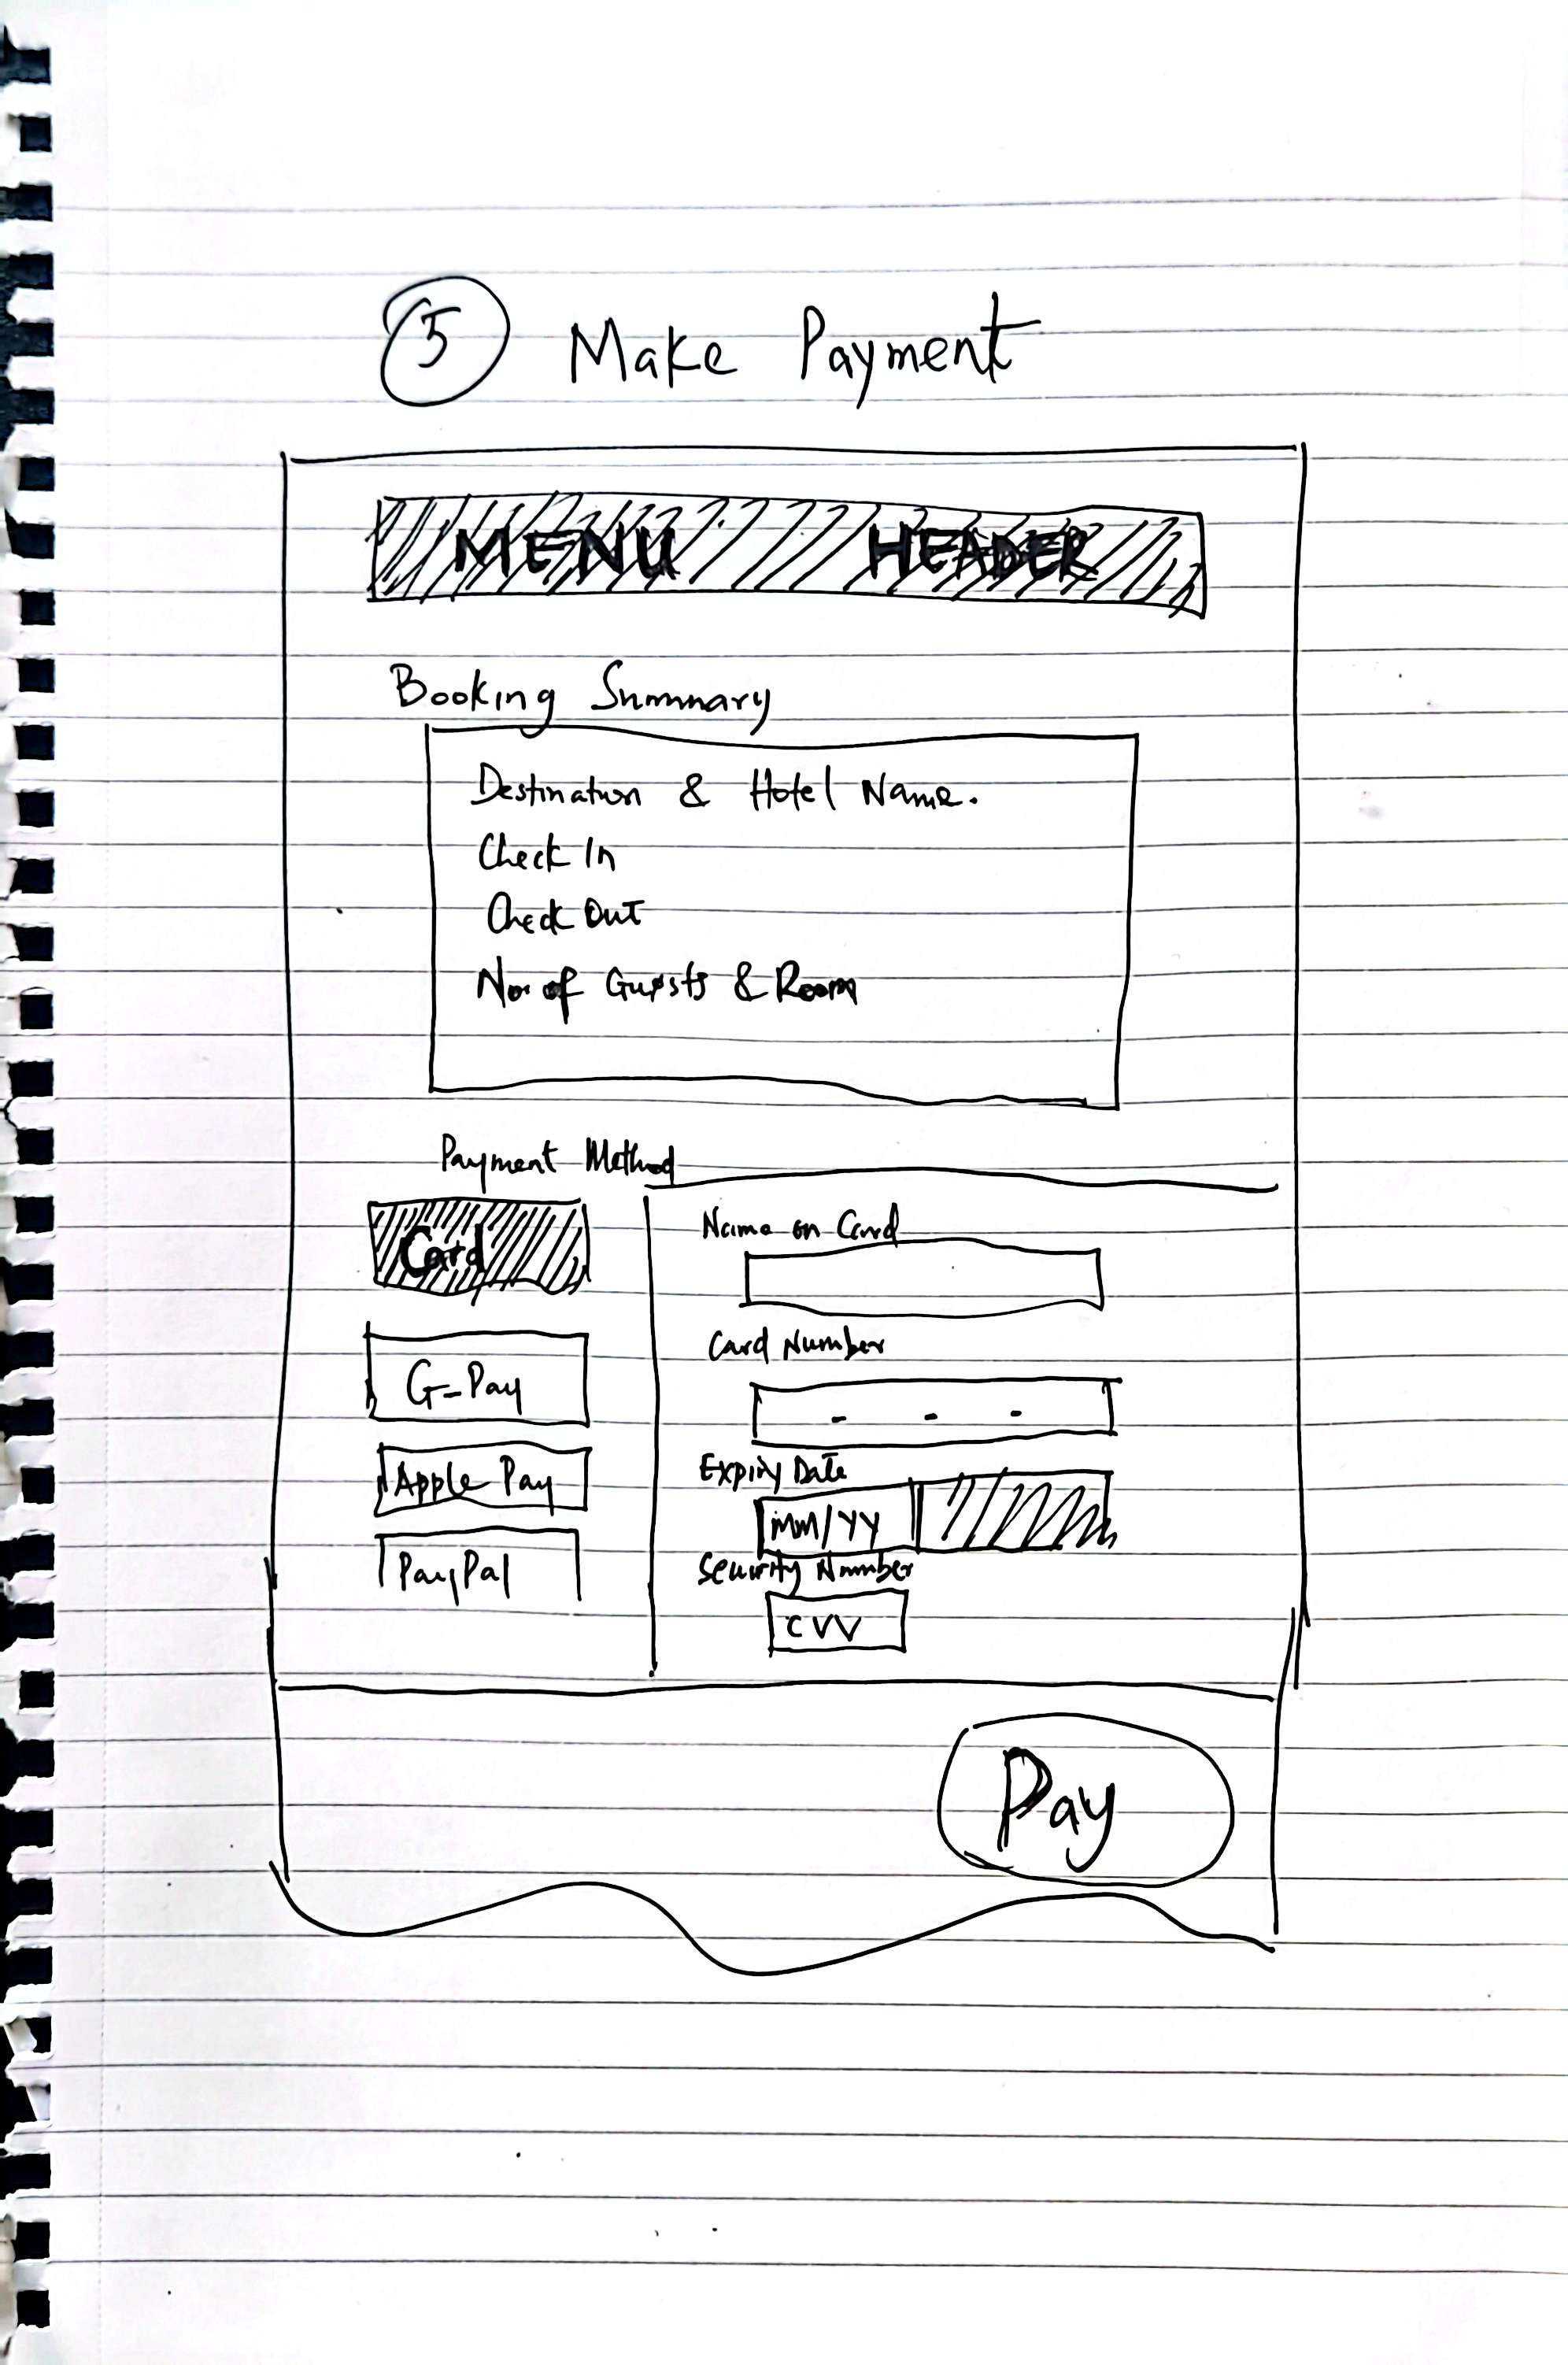 5 Make Payment
MENU HEADER
Booking Summary
Destination & Hotel Name.
Check In
Check Out
No. of Guests & Room
Payment Method
Card
G-Pay
Apple Pay
PayPal
Name on Card
Card Number
- - -
Expiry Date
MM/YY
Security Number
CVV
Pay